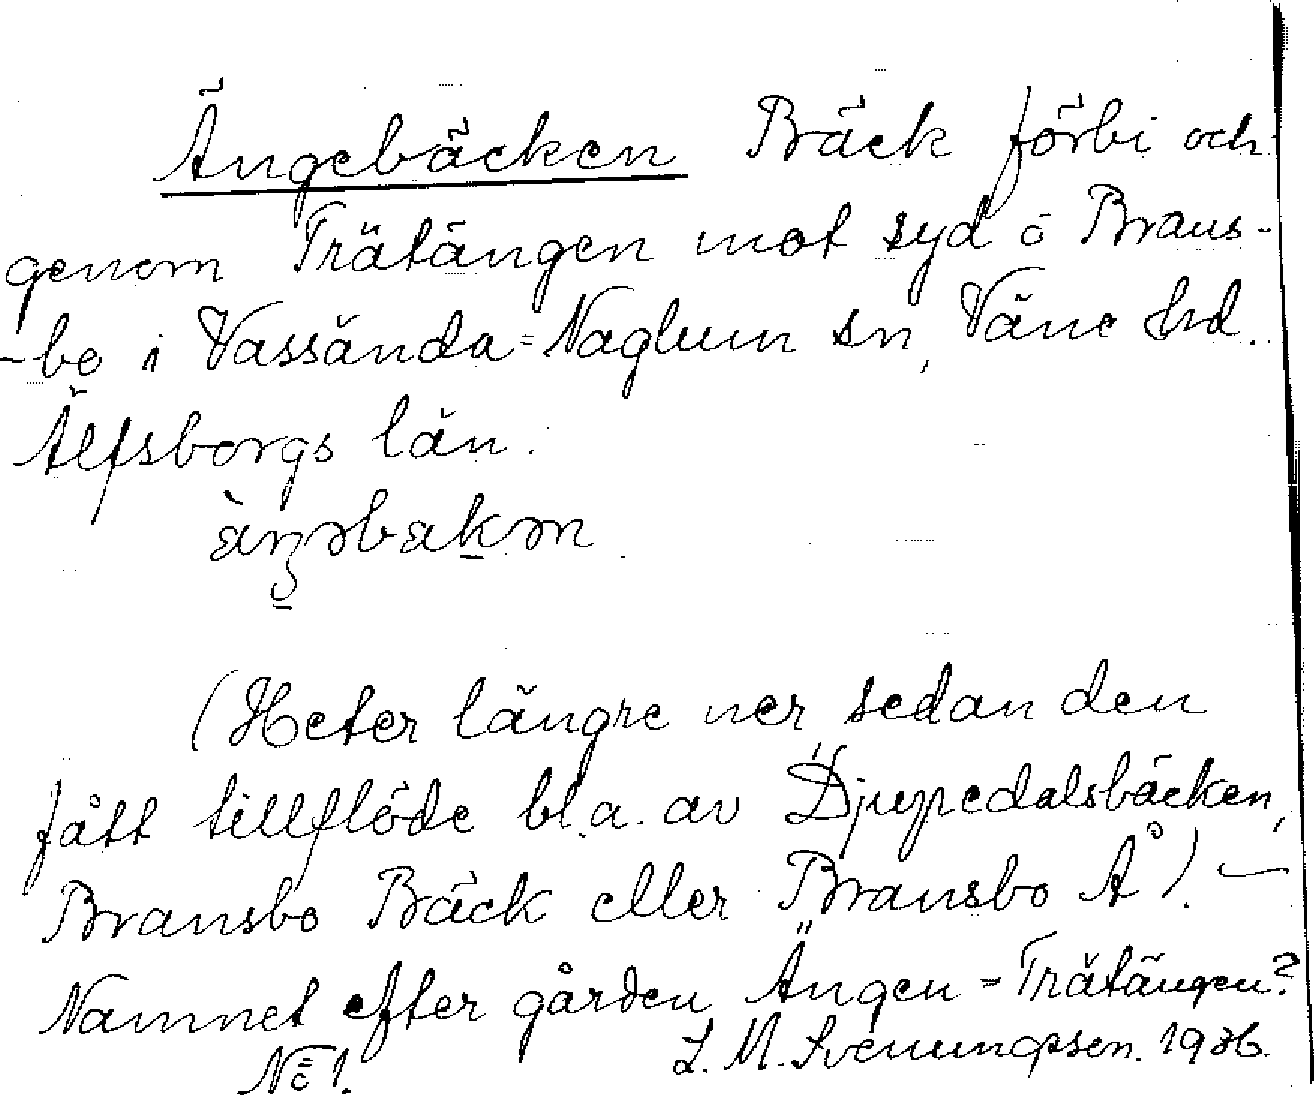 Ängebäcken Bäck förbi och
genom Trätängen mot syd ö Brans-
-bo i Vassända=Naglum sn, Väne hd.
Älfsborgs län.
(Heter längre ner sedan den
fått tillflöde bl.a. av Djupedalsbäcken,
Bransbo Bäck eller Bransbo Å). —
Namnet efter gården Ängen = Trätängen?
L. M. Svenungsson. 1936.